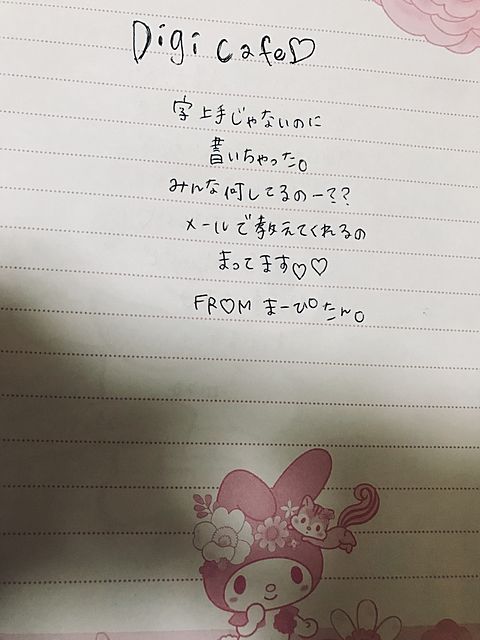 Digi cafe♡
字上手じゃないのに
書いちゃった。
みんな何してるのー??
メールで教えてくれるの
まってます♡♡
FR♡M まーぴたん。